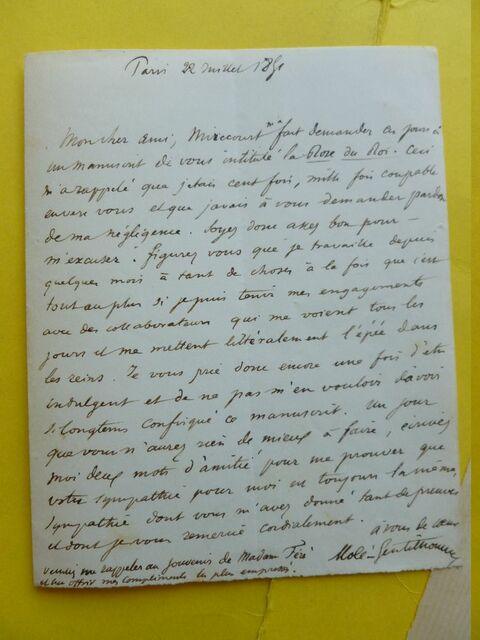 Paris 22 Juillet 1851
Mon cher ami, Mirecourt m'a fait demander ces jours ci
un manuscrit de vous intitulé la Rose du Roi. Ceci
m'a rappelé que j'etais cent fois, mille fois coupable
envers vous et que j'avais à vous demander pardon
de ma négligence. Soyez donc assez bon pour
m'excuser. figurez vous que je travaille depuis
quelques mois à tant de choses à la fois que c'est
tout au plus si je puis tenir mes engagements
avec des collaborateurs qui me voient tous les
jours et me mettent littéralement l'épée dans
les reins. Je vous prie donc encore une fois d'etre
indulgent et de ne pas m'en vouloir d'avoir
si longtems confisqué ce manuscrit. Un jour
que vous n'aurez rien de mieux à faire, ecrivez
moi deux mots d'amitié pour me prouver que
votre sympathie pour moi est toujours la même
sympathie dont vous m'avez donné tant de preuves
et dont je vous remercie cordialement.
à vous de cœur
Molé-Gentilhomme
Veuillez me rappeler au souvenir de Madame
et lui offrir mes compliments les plus empressés.